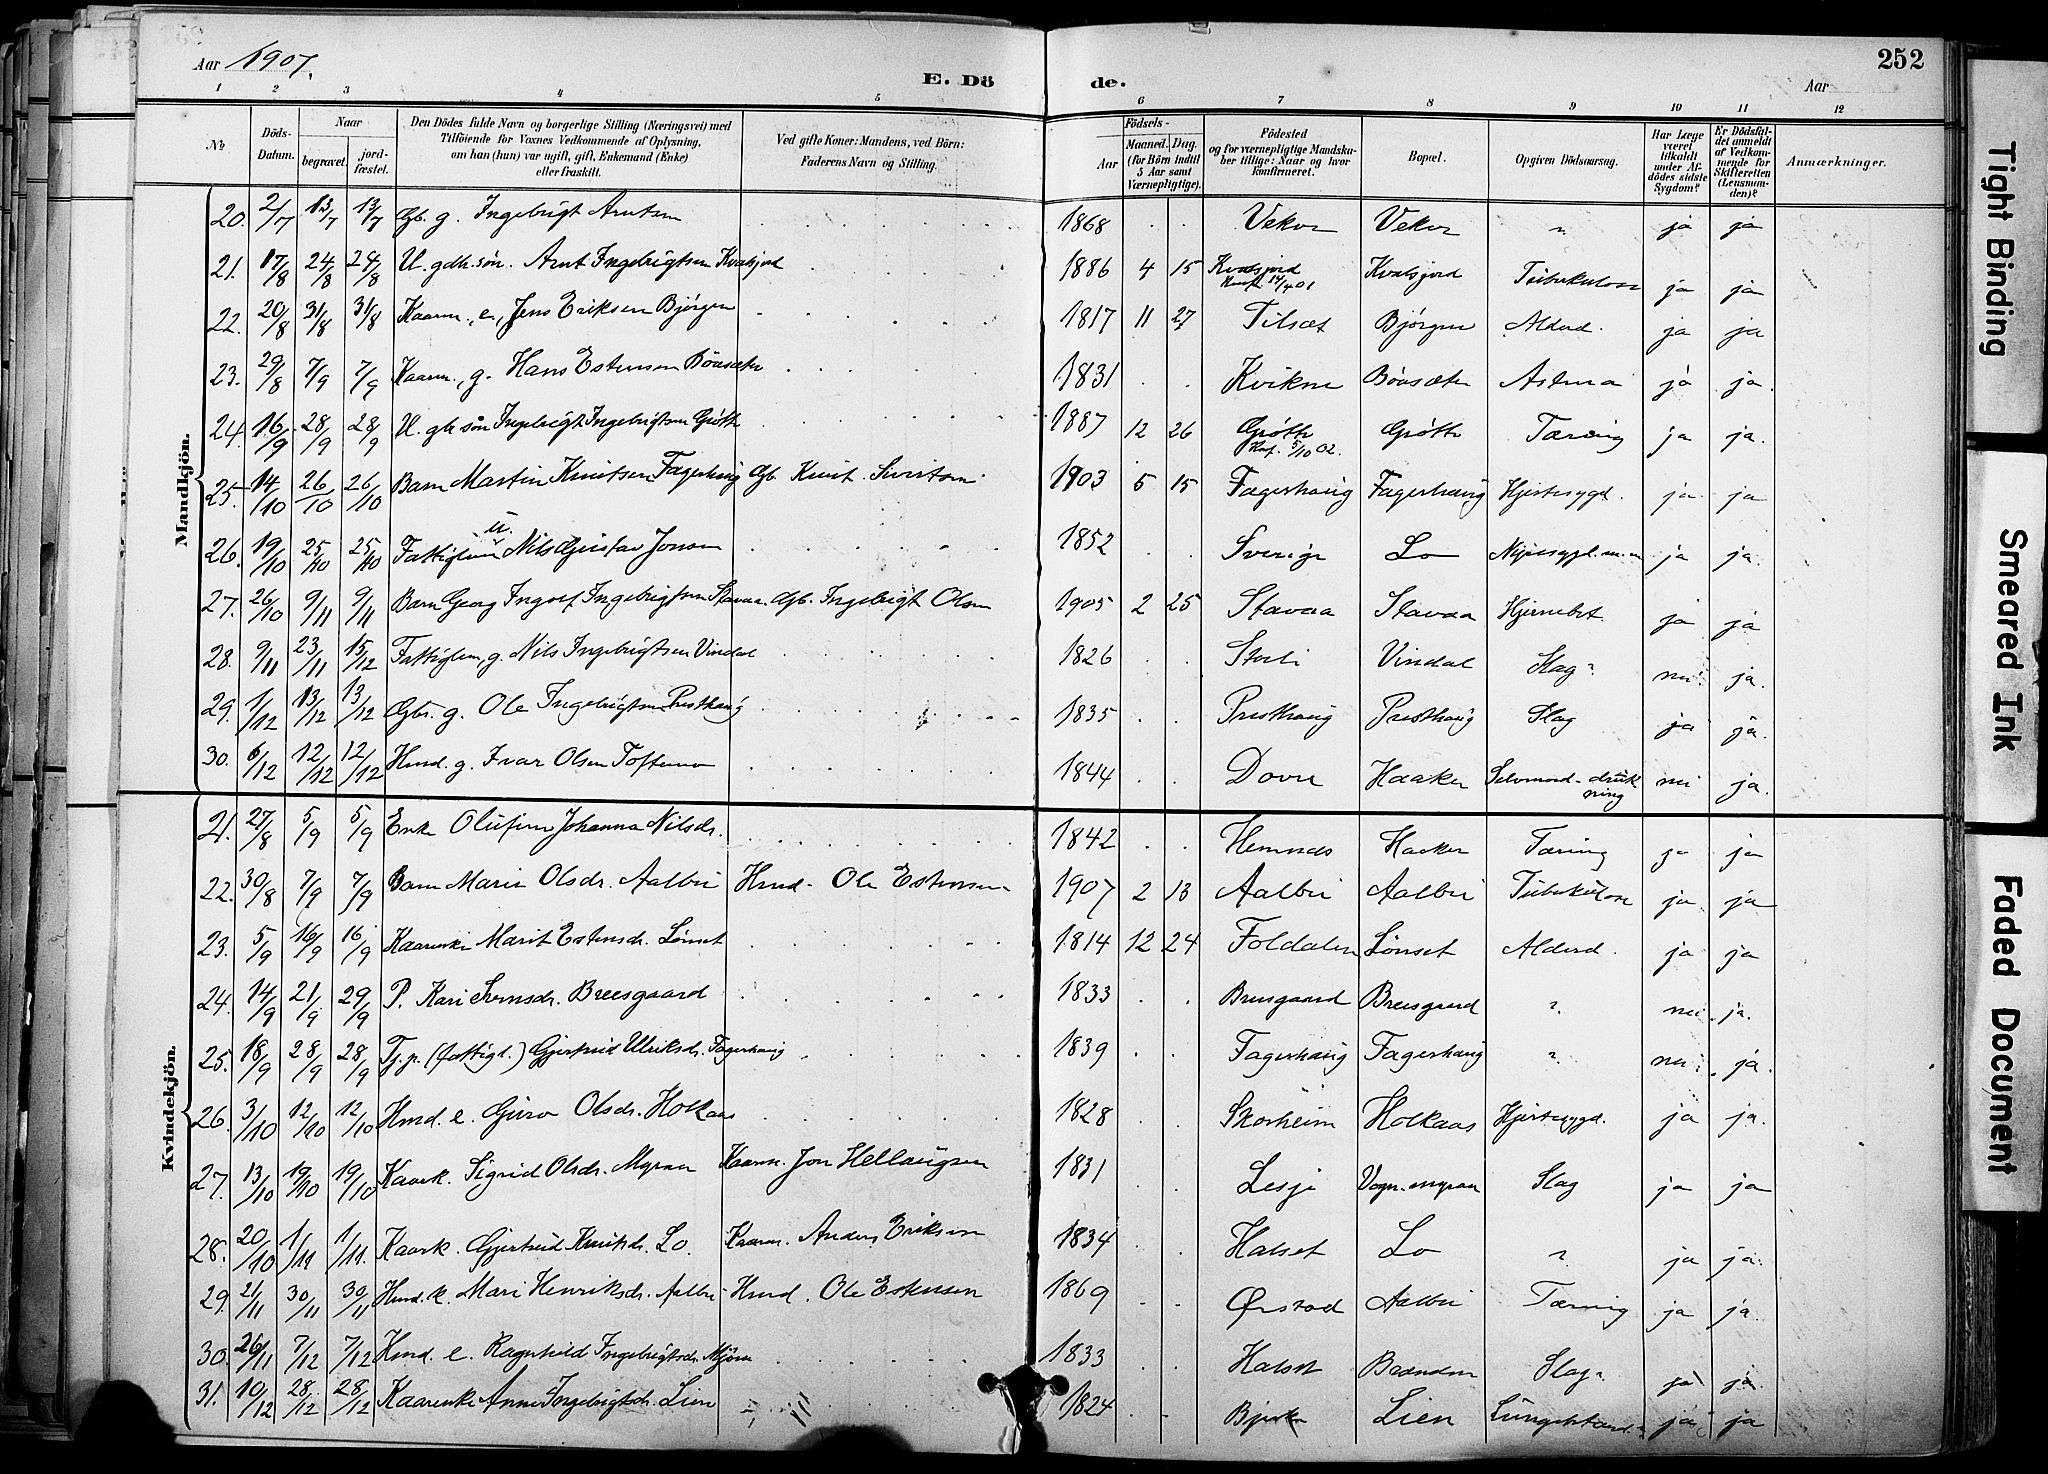 Aar 1907. E. Dö de. Aar 252
1 2 3 4 5 6 7 8 9 10 11 12
No
Döds-Datum.
Naar begravet. jordfæstet.
Den Dödes fulde Navn og borgerlige Stilling (Næringsvei) med
Tilföiende for Voxnes Vedkommende af Oplysning,
om han (hun) var ugift, gift, Enkemand (Enke)
eller fraskilt.
Ved gifte Koner: Mandens, ved Börn:
Faderens Navn og Stilling.
Födsels-
Aar Maaned. Dag. (for Börn indtil 5 Aar samt Værnepligtige).
Födested og for værnepligtige Mandskaber tillige: Naar og hvor konfirmeret.
Bopæl.
Opgiven Dödsaarsag.
Har Læge været tilkaldt under Afdödes sidste Sygdom?
Er Dödsfaldet anmeldt af Vedkommende for Skifteretten (Lensmanden)?
Anmærkninger.
Mandkjön.
20. 2/7 13/7 13/7 Gb. g. Ingebrigt Arntsen 1868 Vekve Vekve " ja ja
21. 17/8 24/8 24/8 U. gdb. søn. Arnt Ingebrigtsen Kvalsjord 1886 4 15 Kvalsjord Konf. 14/4 01 Kvalsjord Tuberkulose ja ja
22. 20/8 31/8 31/8 Kaarm., e., Jens Eriksen Bjørgen 1817 11 27 Tilset Bjørgen Alderd. ja ja
23. 29/8 7/9 7/9 Kaarm., g. Hans Estensen Böasæter 1831 Kvikne Böasæter Astma ja ja.
24. 16/9 28/9 28/9 U. gb. søn Ingebrigt Ingebrigtsen Grötte 1887 12 26 Grötte Konf. 5/10 02. Grötte Tæring ja ja.
25. 14/10 26/10 26/10 Barn Martin Knutsen Fagerhaug Gb. Knut Sivertsen 1903 5 15 Fagerhaug Fagerhaug Hjertesygd. ja ja
26. 19/10 25/10 25/10 Fattiglem u. Nils Gustav Jonsen 1852 Sverige Lo Nyresygd. m.m ja ja.
27. 26/10 9/11 9/11 Barn Georg Ingolf Ingebrigtsen Stavaa. Gb. Ingebrigt Olsen 1905 2 25 Stavaa Stavaa Hjernebet. ja ja
28. 9/11 23/11 15/12 Fattiglem, g. Nils Ingebrigtsen Vindal 1826 Storli Vindal Slag? nei. ja.
29. 1/12 13/12 13/12 Gbr. g. Ole Ingebrigtsen Presthaug 1835 Presthaug Presthaug Slag ja ja.
30. 6/12 12/12 12/12 Hmd. g. Ivar Olsen Toftemo 1844 Dovre Haaker Selvmord - drukning nei ja.
Kvindekjön.
21. 27/8 5/9 5/9 Enke Olufine Johanna Nilsdr. 1842 Hemnds Haaker Tæring ja ja
22. 30/8 7/9 7/9 Barn Marie Olsdr. Aalbu Hmd. Ole Estensen 1907 2 13 Aalbu Aalbu Tuberkulose ja ja
23. 5/9 16/9 16/9 Kaarenke Marit Estensdr. Lönset 1814 12 24 Foldalen Lönset Alderd. ja ja
24. 14/9 21/9 29/9 P. Kari Svensdr. Breesgaard 1833 Breesgaard Breesgaard ". nei. ja.
25. 18/9 28/9 28/9 Tj.p. (fattigl.) Gjertrud Ulriksdr. Fagerhaug 1839 Fagerhaug Fagerhaug " nei. ja.
26. 3/10 12/10 12/10 Hmd. e. Guro Olsdr. Holkaas 1828 Skorheim Holkaas Hjertesygd. ja ja.
27. 13/10 19/10 19/10 Kaark. Sigrid Olsdr. Myran Kaarm. Jon Hellaugsen 1831 Lesje Vogn.myran Slag ja ja
28. 20/10 1/11 1/11. Kaark. Gjertrud Knutsdr. Lo. Kaarm. Anders Eriksen 1834 Halset Lo " ja ja.
29. 21/11 30/11 30/11 Hmd.k. Mari Henriksdr. Aalbu Hmd. Ole Estensen 1869 Ørstad Aalbu Tæring ja ja.
30. 26/11 7/12 7/12 Hmd. e. Ragnhild Ingebrigtsdr. Mjöen 1833 Halset Slag? ja ja
31. 10/12 28/12 28/12 Kaarenke Anne Ingebrigtsdr. Lien 1824 Bjerke Lien ja ja
Tight Binding
Smeared Ink
Faded Document